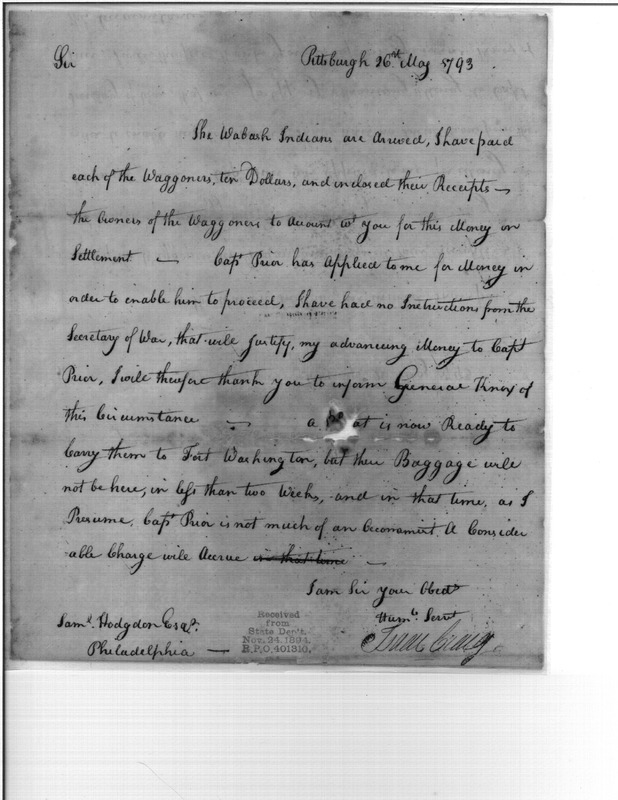 Sir Pittsburgh 26th May 1793
The Wabash Indians are Arrived, I have paid
each of the Waggoners, ten Dollars, and inclosed their Receipts —
the Owners of the Waggoners to Account wt. you for this Money on
Settlement — Capt Prior has Applied to me for Money in
order to enable him to proceed, I have had no Instructions from the
Secretary of War, that will Justify, my advancing Money to Capt
Prior, I will therefore thank you to inform General Knox of
this Circumstance — a Boat is now Ready to
Carry them to Fort Washington, but their Baggage will
not be here, in less than two Weeks, and in that time, as I
Presume, Capt Prior is not much of an Oeconomist A Consider
able Charge will Accrue in that time —
I am Sir your Obedt
Humb. Servt
Saml. Hodgdon Esqr.
Philadelphia —
Isaac Craig
Received
from
State Dep't.
Nov. 24, 1894.
R.P.O. 401310.